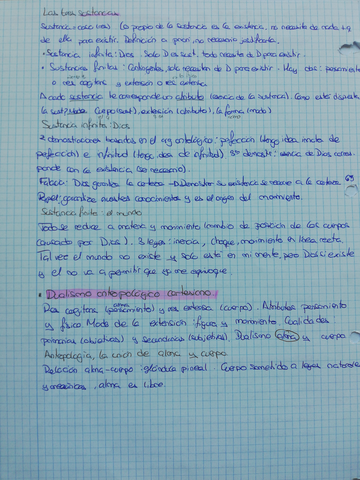 Las tres sustancias
Sustancia: cosa (res). Lo propio de la sustancia es la existencia, no necesita de nada + q
de ella para existir. Definición a priori, no necesario justificarla.
• Sustancia infinita: Dios. Solo D es sust. todo necesita de D para existir.
• Sustancias finitas: Contingentes, solo necesitan de D para existir. Hay dos: pensamiento
o res cogitans y extensión o res extensa.
A cada sustancia le corresponde un atributo (esencia de la sustancia). Como este
la sust. Modos: cuerpo (sust), extensión (atributo), la forma (modo)
Sustancia infinita: Dios
2 demostraciones basadas en el arg ontológico: perfección (tengo idea innata de
perfección) e infinitud (tengo idea de infinitud) 3ª demostr: esencia de Dios corres
ponde con la existencia (ser necesario).
Falacia: Dios garantiza la certeza → Demostrar su existencia se recurre a la certeza
Papel: garantiza nuestros conocimientos y es el origen del movimiento.
Sustancia finita: el mundo
Todo se reduce a materia y movimiento (cambio de posición de los cuerpos
causado por Dios). 3 leyes: inercia, choque, movimiento en línea recta.
Tal vez el mundo no existe y solo está en mi mente, pero Dios sí existe
y él no va a permitir que yo me equivoque.
• Dualismo antropológico cartesiano:
Res cogitans (pensamiento) alma y res extensa (cuerpo). Atributos: pensamiento
y físico. Modo de la extensión: figura y movimiento. Cualidades
primarias (objetivas) y secundarias (subjetivas). Dualismo alma y cuerpo
Antropología, la unión de alma y cuerpo
Relación alma-cuerpo: glándula pineal. Cuerpo sometido a leyes naturales
y mecánicas, alma es libre.